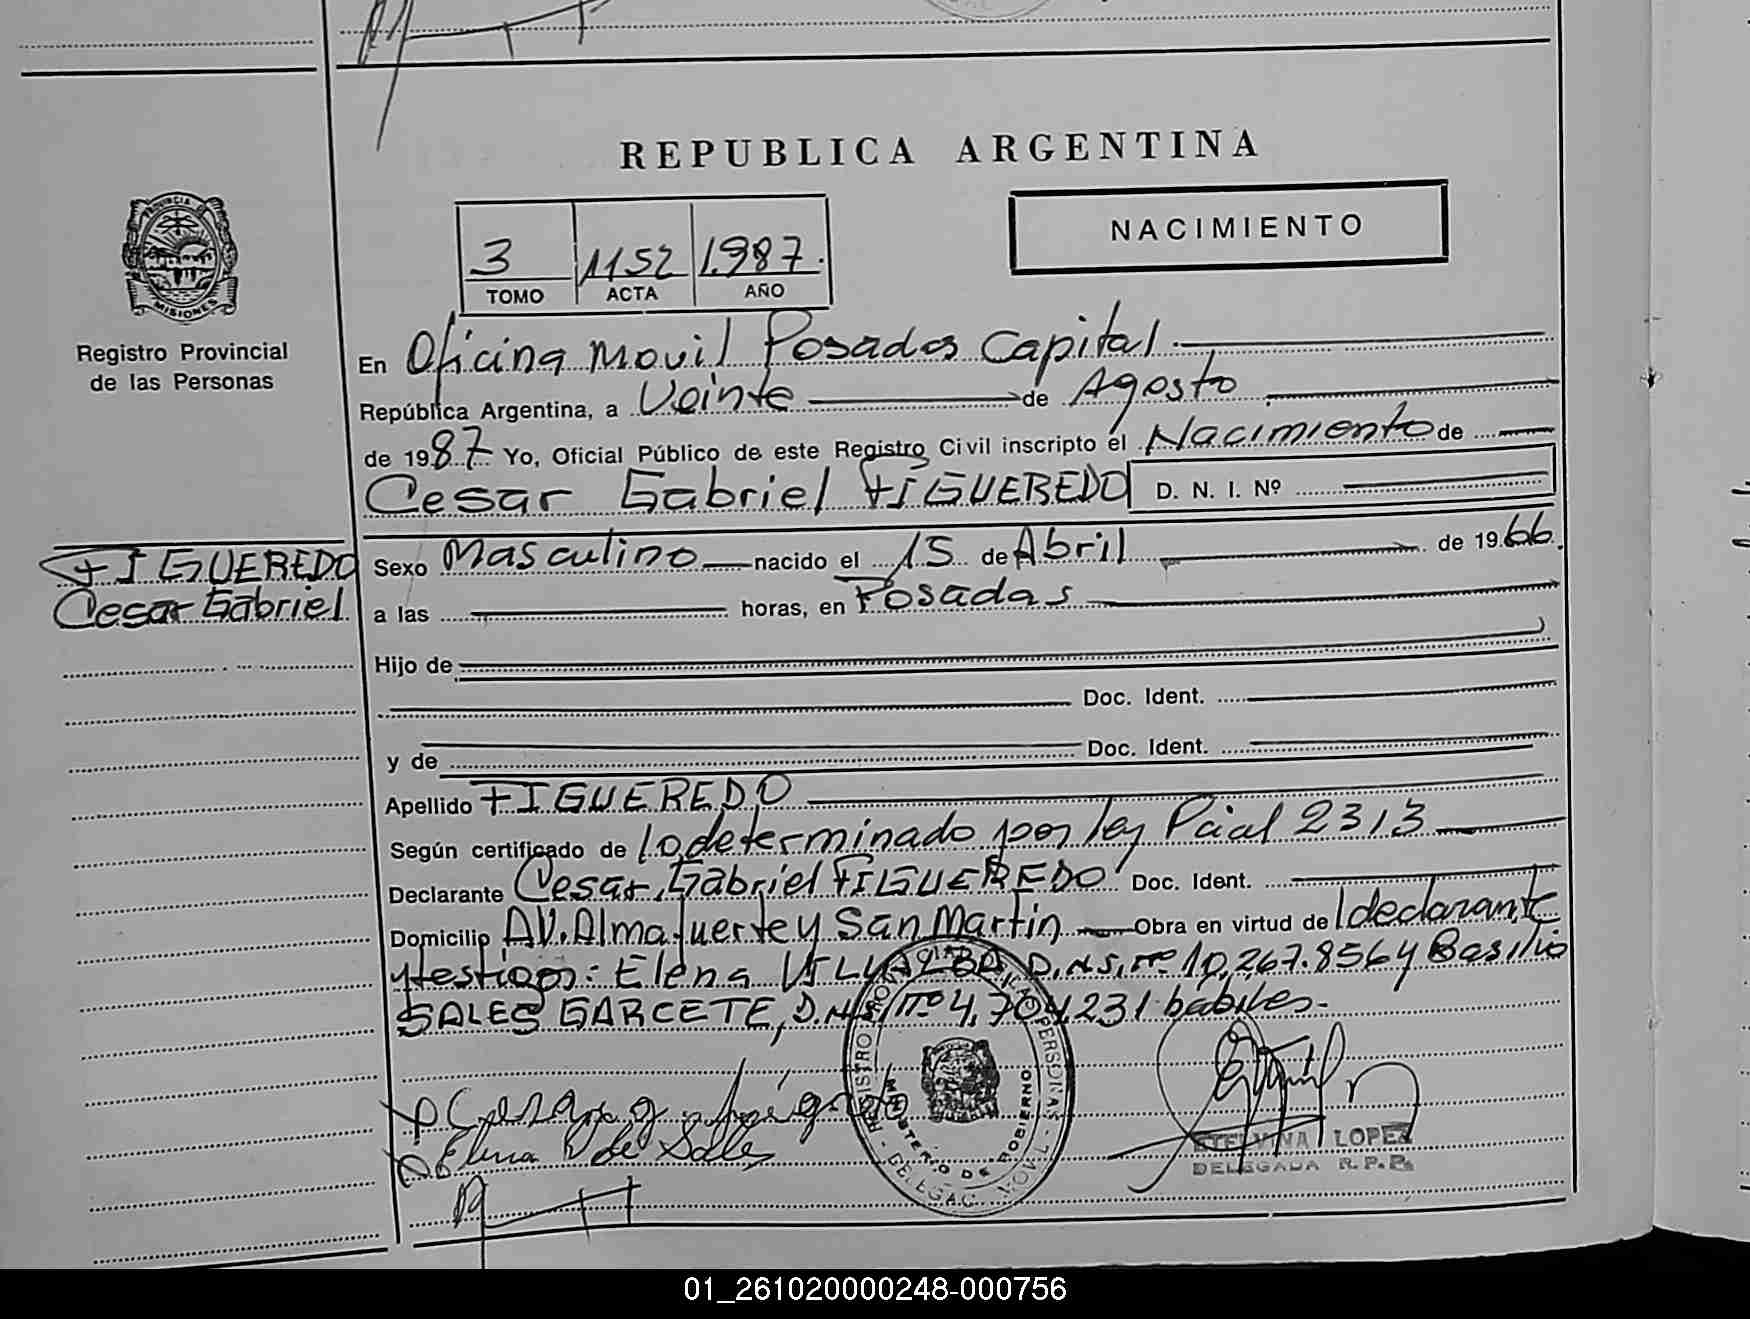 REPUBLICA ARGENTINA
PROVINCIA DE
MISIONES
Registro Provincial
de las Personas
3 1152 1.987.
TOMO ACTA AÑO
NACIMIENTO
En Oficina Movil Posadas Capital
República Argentina, a Veinte de Agosto
de 1987 Yo, Oficial Público de este Registro Civil inscripto el Nacimiento de
Cesar Gabriel FIGUEREDO D. N. I. Nº
FIGUEREDO
Cesar Gabriel
Sexo Masculino nacido el 15 de Abril de 1966
a las horas, en Posadas
Hijo de
Doc. Ident.
y de Doc. Ident.
Apellido FIGUEREDO
Según certificado de lo determinado por ley Pcial 2313
Declarante Cesar Gabriel FIGUEREDO Doc. Ident.
Domicilio AV. Almafuerte y San Martin Obra en virtud de l declarante
y testigos: Elena VILLALBA, D.N.I, nº 10,267.856 y Basilio
SALES GARCETE, D.N.I, nº 4,704,231 habiles.-
REGISTRO PROV. DE LAS PERSONAS
MINISTERIO DE GOBIERNO
- DELEGAC. MOVIL -
Elena V de Sales
ETELVINA LOPEZ
DELEGADA R.P.P.
01_261020000248-000756